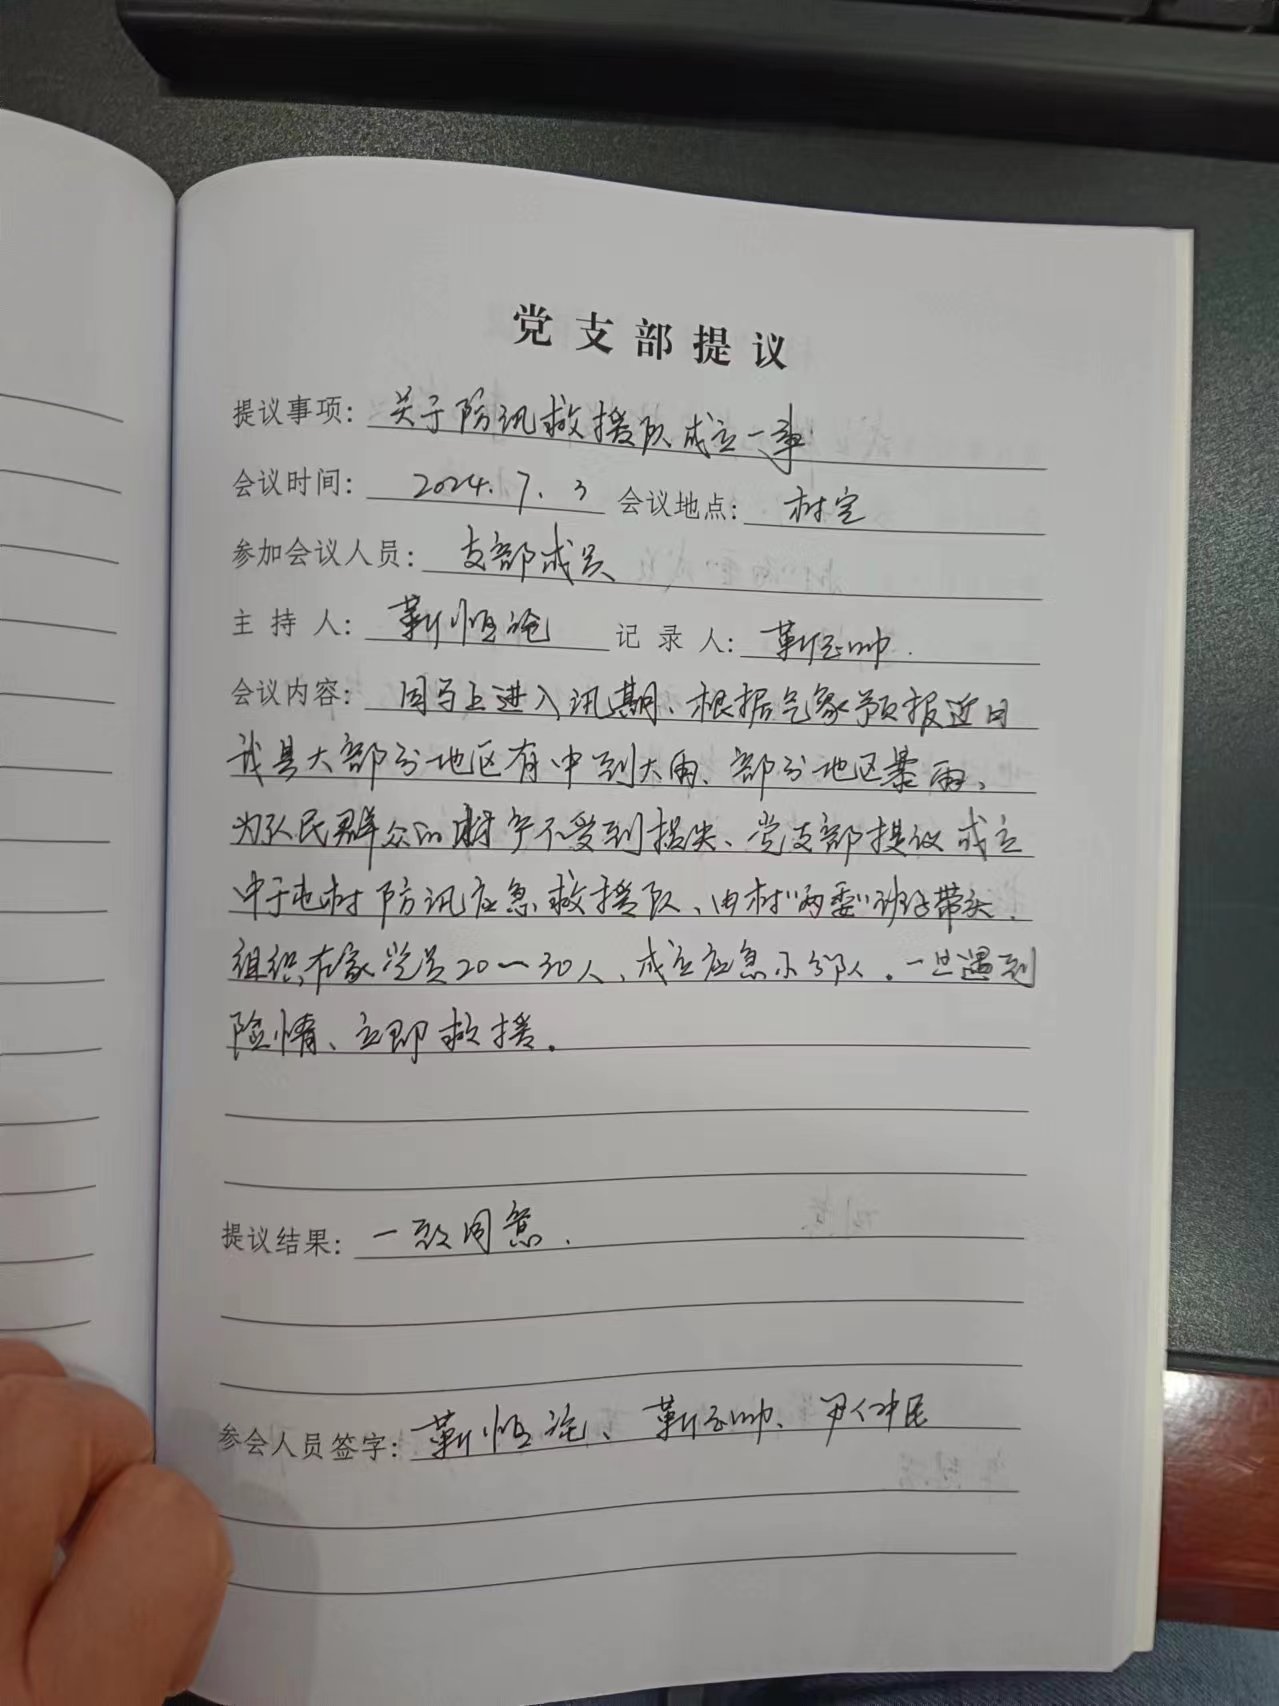 党支部提议
提议事项: 关于防讯救援队成立一事
会议时间: 2024.7.3 会议地点: 村室
参加会议人员: 支部成员
主持人: 靳恒 记录人: 靳帅
会议内容: 因马上进入讯期、根据气象预报近日
我县大部分地区有中到大雨、部分地区暴雨、
为人民群众的财产不受到损失、党支部提议成立
中于屯村防讯应急救援队、由村“两委”班子带头、
组织在家党员20一30人、成立应急小分队。一旦遇到
险情、立即救援。
提议结果: 一致同意.
参会人员签字: 靳恒、靳帅、尹仲民